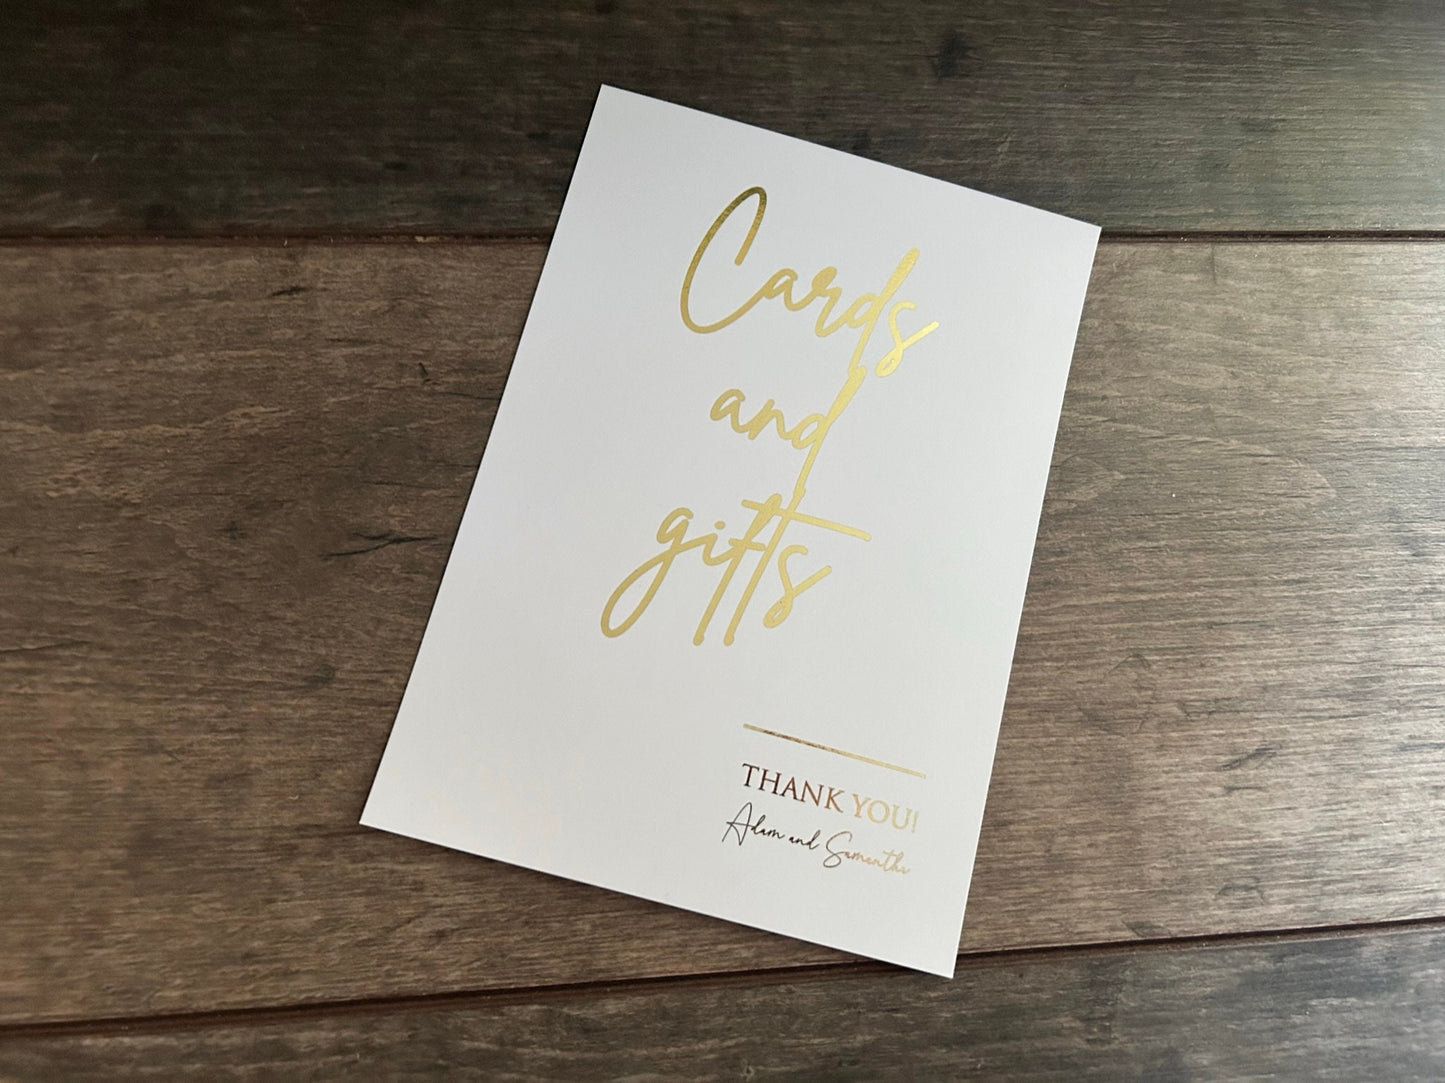 Cards
and
gifts
THANK YOU!
Adam and Samantha